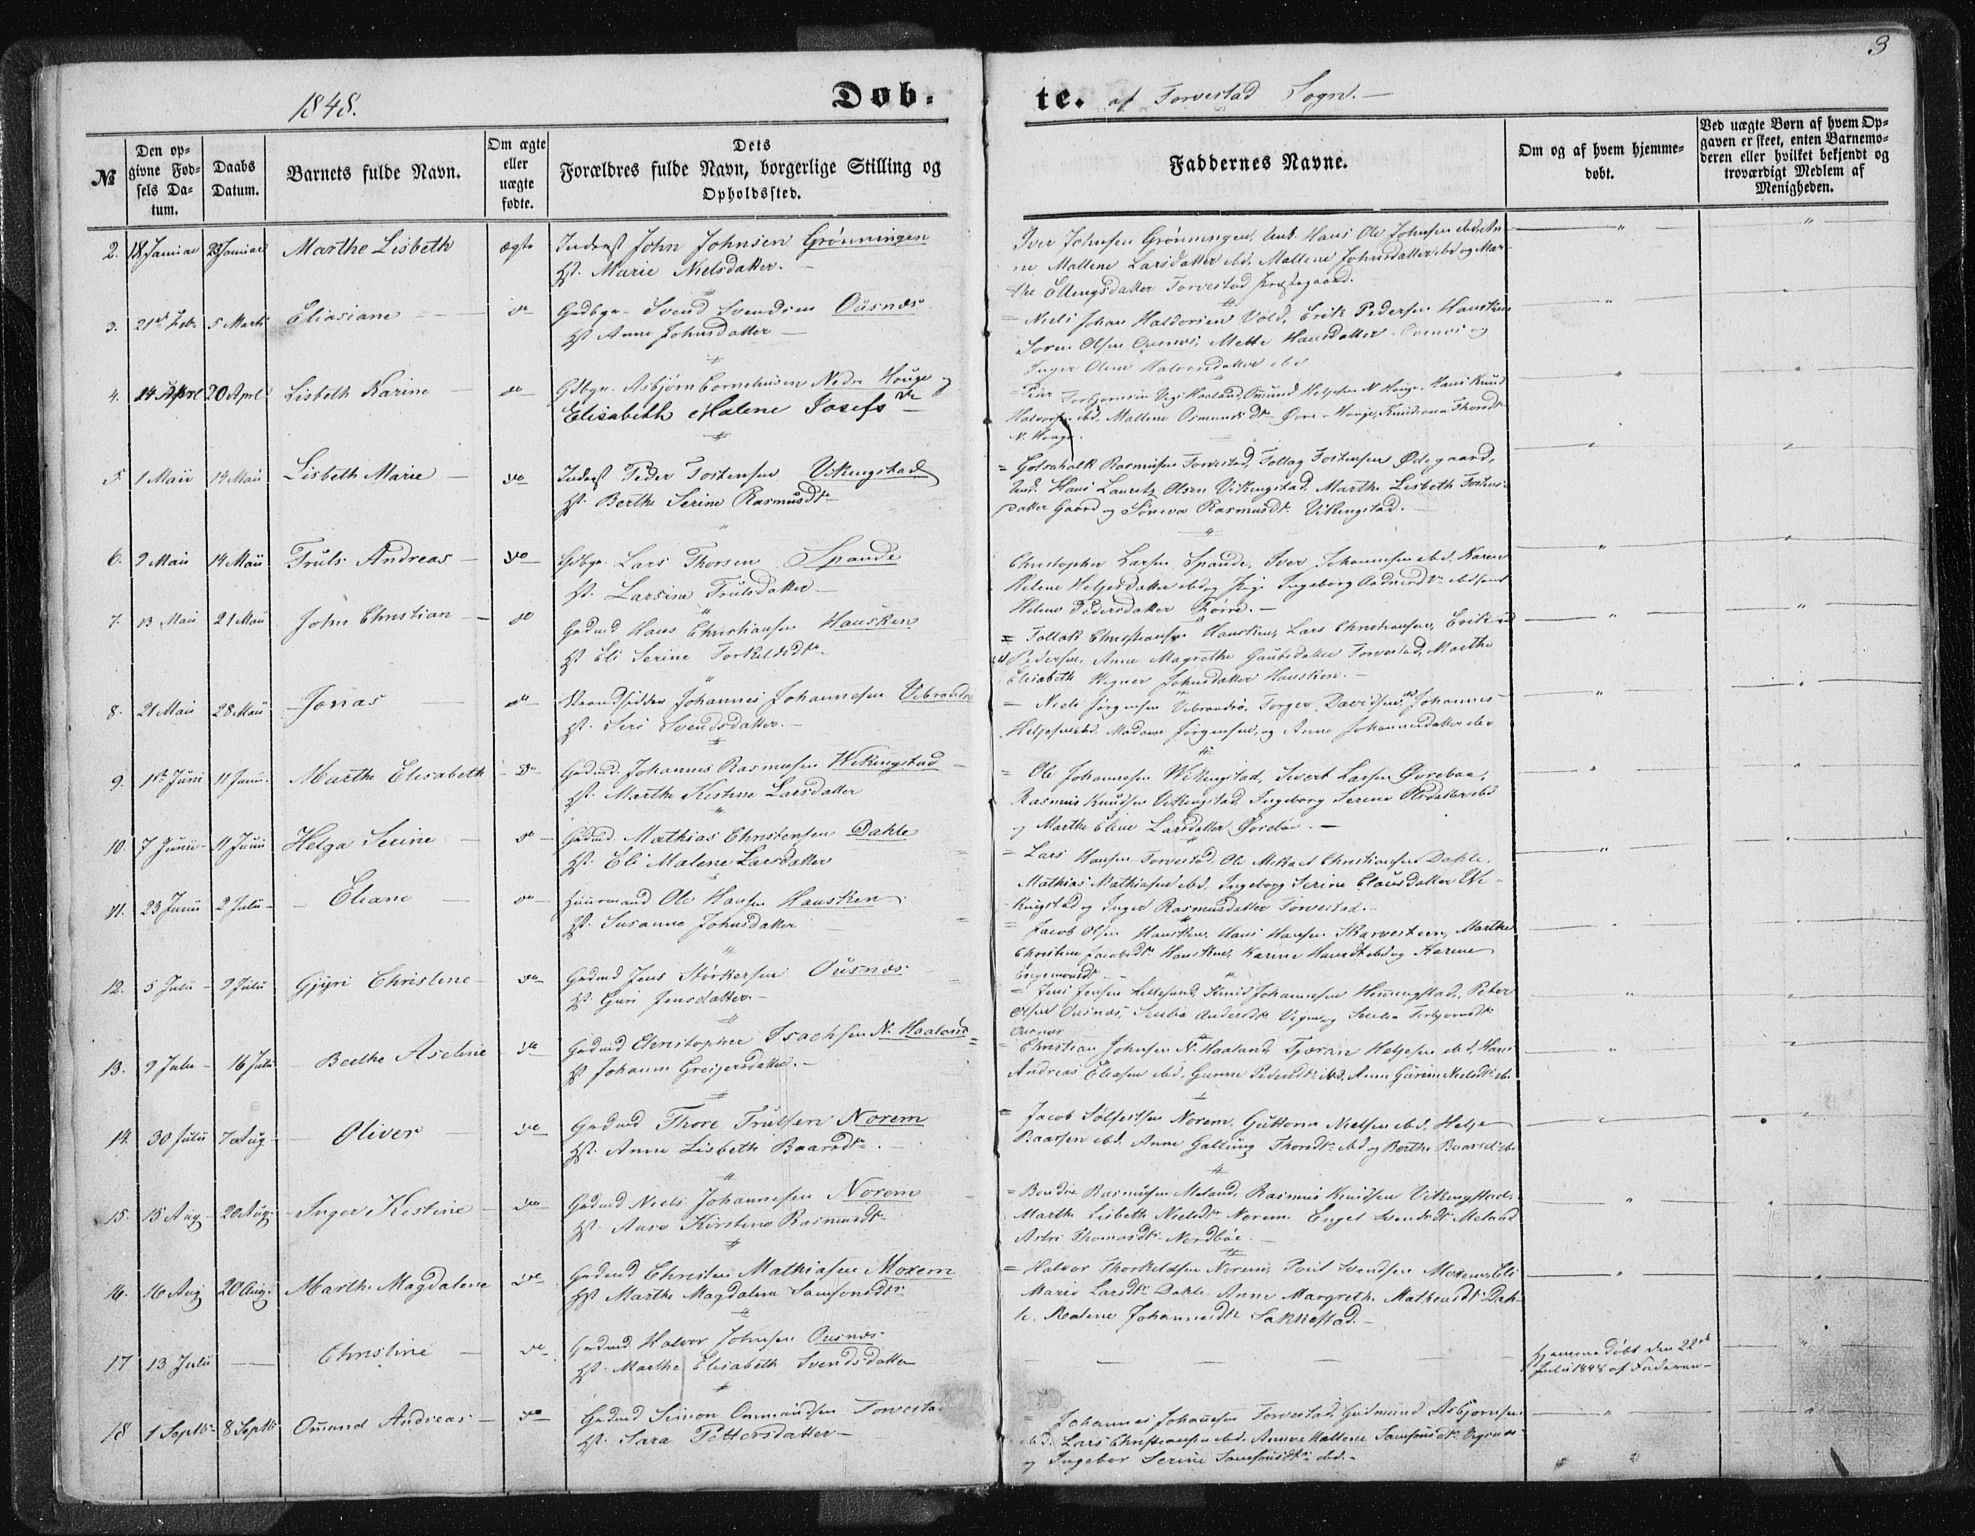 3
1848.
Døb-
te. af Torvestad Sogn.
№
Den op-
givne Fød-
sels Da-
tum.
Daabs
Datum.
Barnets fulde Navn.
Om ægte
eller
uægte
fødte.
Dets
Forældres fulde Navn, borgerlige Stilling og
Opholdssted.
Faddernes Navne.
Om og af hvem hjemme-
døbt.
Ved uægte Børn af hvem Op-
gaven er skeet, enten Barnemo-
deren eller hvilket bekjendt og
troværdigt Medlem af
Menigheden.
2. 18 Januar 23 Januar Marthe Lisbeth ægte Inderst John Johnsen Grønningen
Hst. Marie Nielsdatter.
Iver Johnsen Grønningen, Hans Ole Johnsen
ne Mallene Larsdatter ibd. Mallene Johnsdatter ibd og Mar-
the Ellingsdatter Torvestad Præstegaard.
3. 21de Febr 5 Marti Eliasiane do Grdbgr. Svend Svendsen Ousnæs
Hst Anne Johnsdatter
Niels Johan Haldorsen Vold, Erik Pedersen Hausken
Soren Olsen Ousnæs, Mette Hansdatter Ousnæs og
Inger Olene Halvorsdatter ibd
4. 14 April 20 April Lisbeth Karine do Gdbgr. Asbjørn Cornelinsen Nedre Houge og
Elisabeth Malene Josefsdtr
Torbjørnsen Haaland, Omund Helgesen N Houge, Hans Knud
Haldorsen ibd, Mallene Osmundsdtr Øvre Houge,
N. Houge.
5 1 Maii 14 Maii Lisbeth Marie do Inderst Peder Tostensen Vikingstad
Hst. Berthe Serine Rasmusdtr
Gotschalk Rasmusen Torvestad, Tollag Tostensen Ødegaard,
Und. Hans Lauritz Olsen Vikingstad, Marthe Lisbeth Tostens-
datter Gaard og Rasmusdtr Vikingstad.
6. 9 Maii 14 Maii Truls Andreas do Gdbgr. Lars Thorsen Spande
Hst. Larsine Trulsdatter
Christopher Larsen Spande, Iver Johannesen ibd, Karen
Helene Helgesdatter ibd og Pige Ingeborg
Helene Pedersdatter
7. 13 Maii 21 Maii John Christian do Grdmd Hans Christiansen Hausken
Hst Eli Serine Torkeldsdtr
Tollak Christiansen Hausken, Lars Christiansen, Erik
Pedersen, Anne Magrethe Torvestad, Marthe
Elisabeth Johnsdatter Hausken.
8. 21 Maii 28 Maii Jonas do Strandsidder Johannes Johannesen Vibrandø
Hst. Siri Svendsdatter.
Niels Jørgensen Vibrandsø, Torger Davidsen, Johannes
Helgesen ibd. Madame Jørgensen, og Anne Johannesdatter ibd
9. 1st Juni 11 Juni Marthe Elisabeth do Grdmd. Johannes Rasmusen Wikingstad
Hst. Marthe Kistine Larsdatter
Ole Johannesen Wikingstad, Sivert Larsen Øvrebøe,
Rasmus Knudsen Vikingstad Ingeborg Serine Olsdatter ibd
og Marthe Eline Larsdatter Øvrebøe.
10. 7 Junii 11 Junii Helga Serine do Grdmd. Mathias Christensen Dahle
Hst. Eli Malene Larsdatter
Lars Hansen Torvestad, Ole Mikael Christiansen Dahle,
Mathias Mathiasen ibd. Ingeborg Serine Clausdatter Wi-
kingstad og Inger Rasmusdatter Torvestad.
11. 23 Junii 2 Julii Eliane do Huusmand Ole Hansen Hausken
Hst. Susanne Johnsdatter
Jacob Olsen Hausken, Hans Hansen Skarvesteen, Marthe
Christine Jacobsdtr Hausken, Karine ibd og Karine
Ingemondsdtr
12. 5 Julii 9 Julii Gjyri Christine do Grdmd Jens Størkersen Ousnæs
Hst. Guri Jensdatter.
Jens Jensen Knud Johannesen Hemmingstad, Peter
Olsen Ousnæs,
Ousnæs
13. 9 Julii 16 Julii Berthe Aseline do Grdmd Christopher Isachsen N. Haaland
Hst Johanne Greigersdatter.
Christian Johnsen N. Haaland, Tjøran Helgesen ibd, Hans
Andreas Eliasen ibd, Gunne Pedersdtr ibd, Anne Gurine Nielsdtr ibd
14. 30 Julii 7 Aug Oliver do Grdmd Thore Trulsen Norem
Hst. Anne Lisbeth Baardsdtr.
Jacob Solfestsen Norem, Guttorm Nielsen ibd, Helge
Baarsen ibd, Anne Thorsdtr ibd og Berthe Baarsdtr ibd
15. 15 Aug 20 Aug. Inger Kistine do Grdmd Niels Johannesen Norem
Hst. Anne Kirstine Rasmusdtr
Rasmusen Meland, Rasmus Knudsen Vikingstad,
Marthe Lisbeth Nielsdtr Norem Engel Svendsdtr Meland
Astri Thomasdtr Nordbøe.
16. 16 Aug 20 Aug. Marthe Magdalene do Grdmd Christen Mathiasen Norem
Hst Marthe Magdalene Samsonsdtr
Halvor Thorkeldsen Norem, Svendsen Norem, Eli
Marie Larsdtr Dahle Anne Margrethe Mathiasdtr Dah-
le, Malene Johannesdtr Sakkestad.
17 13 Julii Christine do Grdmd Halvor Johnsen Ousnæs
Hst. Marthe Elisabeth Svendsdatter
Hjemmedøbt den 22de
Julii 1848 af Faderen
18 1 Septbr 8 Septbr Omund Andreas do Grdmd Simon Ommundsen Torvestad
Hst. Sara Pettersdatter
Johannes Johannesen Torvestad, Gudmund Asbjørnsen
ibd. Lars Christiansen ibd. Anne Mallene Samsonsdtr
og Ingebor Serine Samsonsdtr ibd.